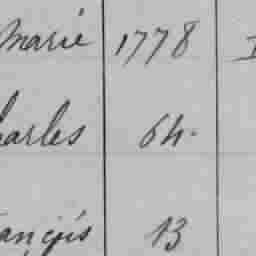 Marie 1778
harles 64.
ançois 13